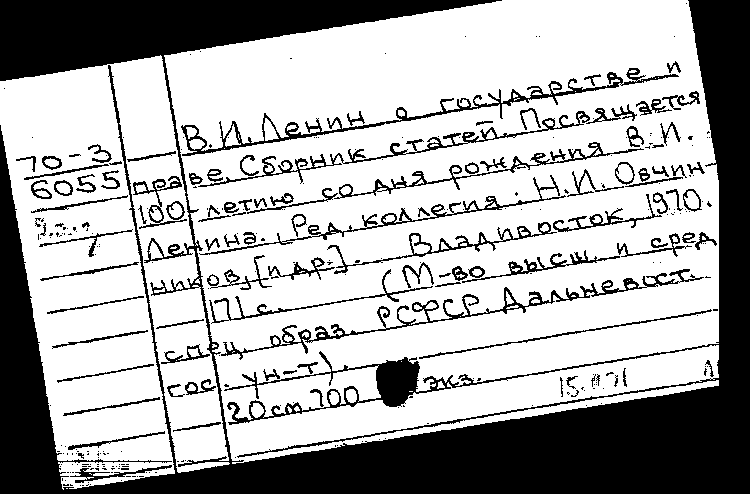 70-3
6055
В.И.Ленин о государстве и
праве. Сборник статей. Посвящается
100-летию со дня рождения В.И.
Ленина. Ред. коллегия: Н.И. Овчин-
ников, [и др.]. Владивосток, 1970.
171 с. (М-во высш. и сред
спец. образ. РСФСР. Дальневост.
гос. ун-т).
20 см. 700 экз.